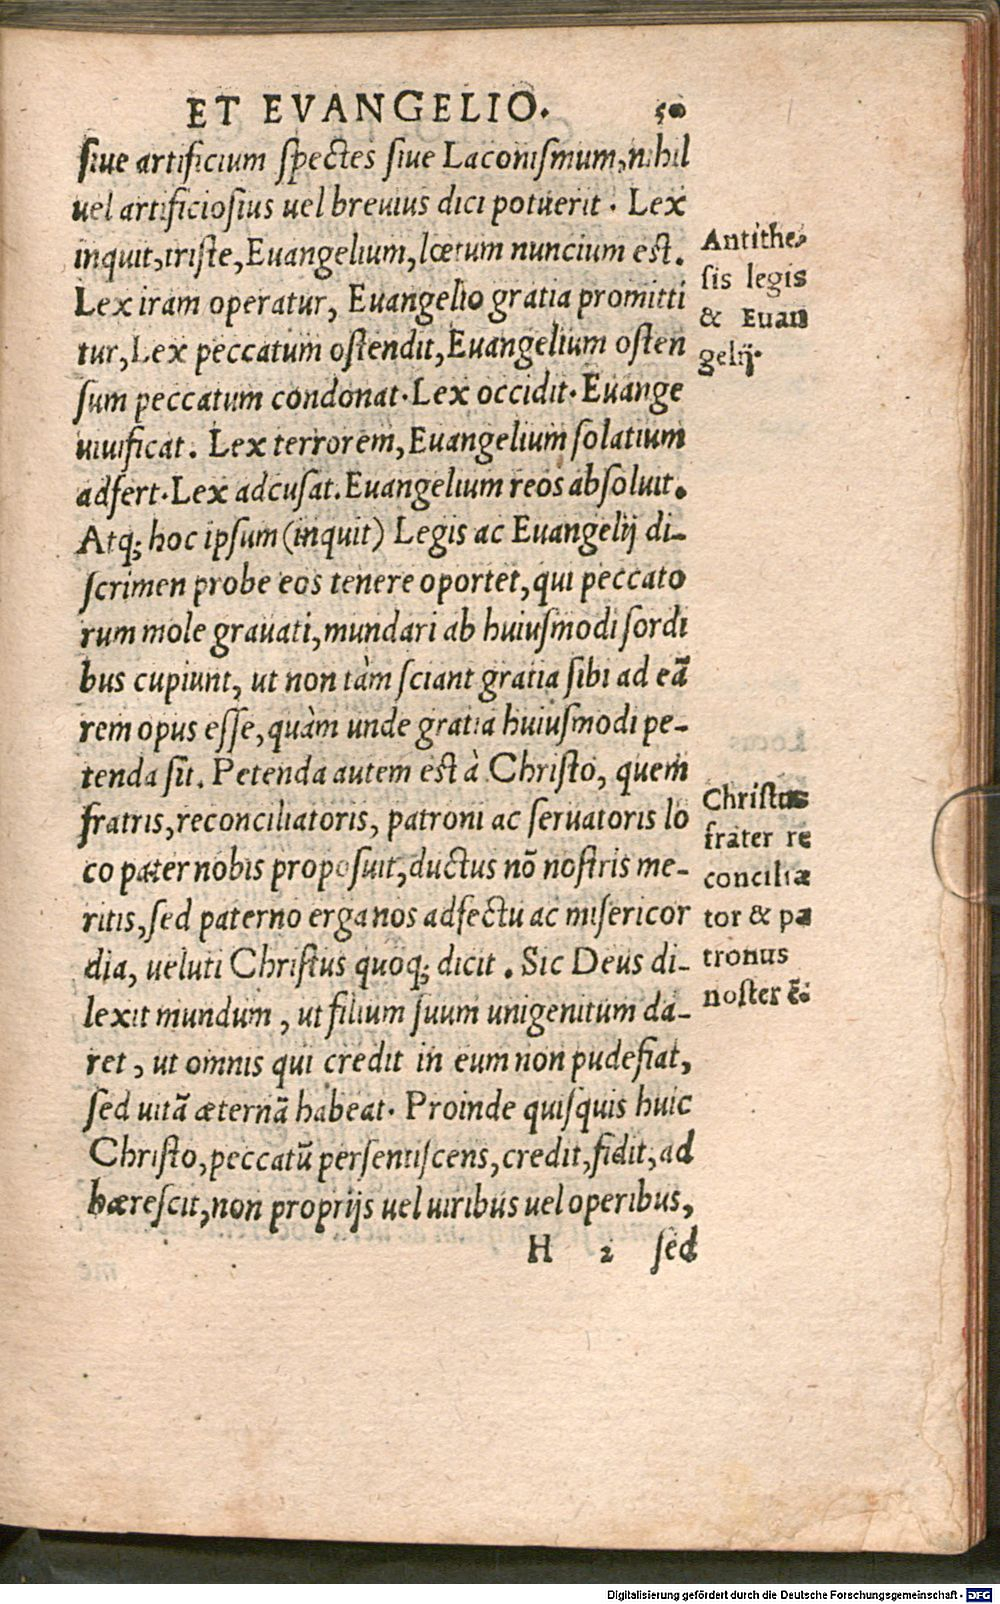 ET EVANGELIO. 50
siue artificium spectes siue Laconismum, nihil
uel artificiosius uel breuius dici potuerit. Lex
inquit, triste, Euangelium, lœtum nuncium est.
Lex iram operatur, Euangelio gratia promitti
tur, Lex peccatum ostendit, Euangelium osten
sum peccatum condonat. Lex occidit. Euange
uiuificat. Lex terrorem, Euangelium solatium
adfert. Lex adcusat. Euangelium reos absoluit.
Atq; hoc ipsum (inquit) Legis ac Euangelij di-
scrimen probe eos tenere oportet, qui peccato
rum mole grauati, mundari ab huiusmodi sordi
bus cupiunt, ut non tàm sciant gratia sibi ad eã
rem opus esse, quàm unde gratia huiusmodi pe-
tenda sit. Petenda autem est à Christo, quem
fratris, reconciliatoris, patroni ac seruatoris lo
co pater nobis proposuit, ductus nõ nostris me-
ritis, sed paterno erga nos adfectu ac misericor
dia, ueluti Christus quoq; dicit. Sic Deus di-
lexit mundum, ut filium suum unigenitum da-
ret, ut omnis qui credit in eum non pudefiat,
sed uitã æternã habeat. Proinde quisquis huic
Christo, peccatũ persentiscens, credit, fidit, ad
hærescit, non proprijs uel uiribus uel operibus,
H 2 sed
Antithe-
sis legis
& Euan
gelij.
Christus
frater re
concilia
tor & pa
tronus
noster ẽ.
Digitalisierung gefördert durch die Deutsche Forschungsgemeinschaft - DFG